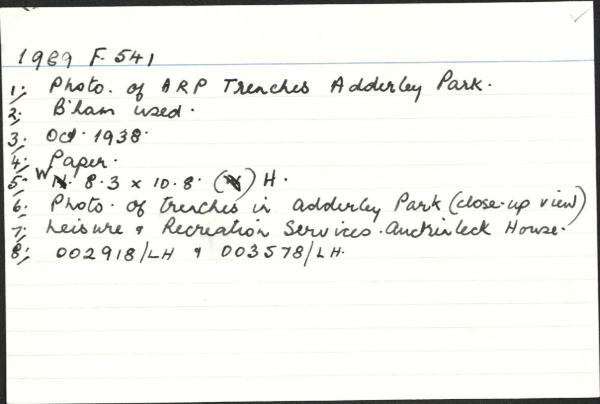 1989 F. 541
1; Photo. of ARP Trenches Adderley Park.
2; B'ham used.
3; Oct. 1938.
4; Paper.
5; W. 8.3 x 10.8. H.
6; Photo. of trenches in Adderley Park (close-up view)
7; Leisure & Recreation Services. Auchinleck House.
8; 002918/LH & 003578/LH.